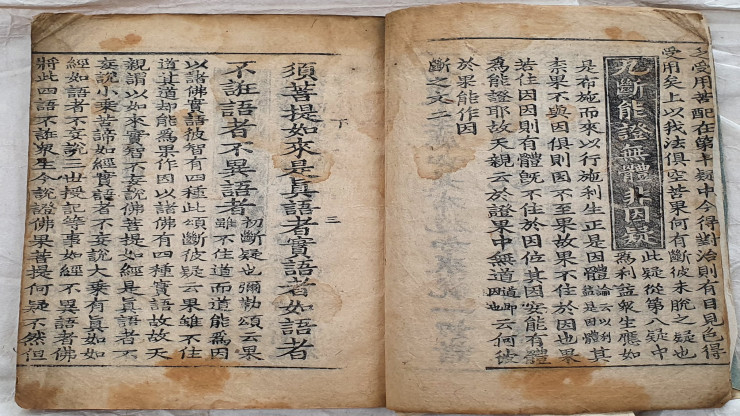 受用苦配在第半疑中今得對治則有目見色得
受用矣上以我法俱空苦果何有斷彼未脫之疑也
九斷能證無體非因疑
此疑從第八疑中
為利益衆生應如
是布施而來以行施利生正是因體論云以利益是因體其
柰果不與因俱則因不至果故果不住於因也果
若住因因則有體旣不住於因位其因安能有體
為能證耶故天親云於證果中無道道即因也云何彼
於果能作因
斷之文二
下 三
須菩提如來是眞語者實語者如語者
不誑語者不異語者初斷疑也彌勒頌云果
雖不住道而道能為因
以諸佛實語彼智有四種此頌斷彼疑云果雖不住
道其道却能為果作因以諸佛有四種實語故故天
親謂以如來實智不妄說佛菩提如經是眞語者不
妄說小乘苦諦如經實語者不妄說大乘有眞如如
經如語者不妄說三世授記等事如經不異語者佛
將此四語不誑衆生今說證佛果菩提何疑不然但